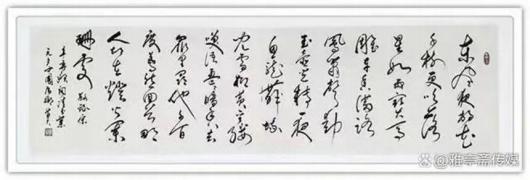 東风夜放花
千树更吹落
星如雨宝马
雕车香满路
凤箫声动
玉壶光转一夜
鱼龙舞蛾
儿雪柳黄金缕
笑语盈盈暗香去
众里寻他千百
度蓦然回首那
人却在灯火阑
珊处
辛弃疾词青玉案
元夕
@雅亭斋传媒